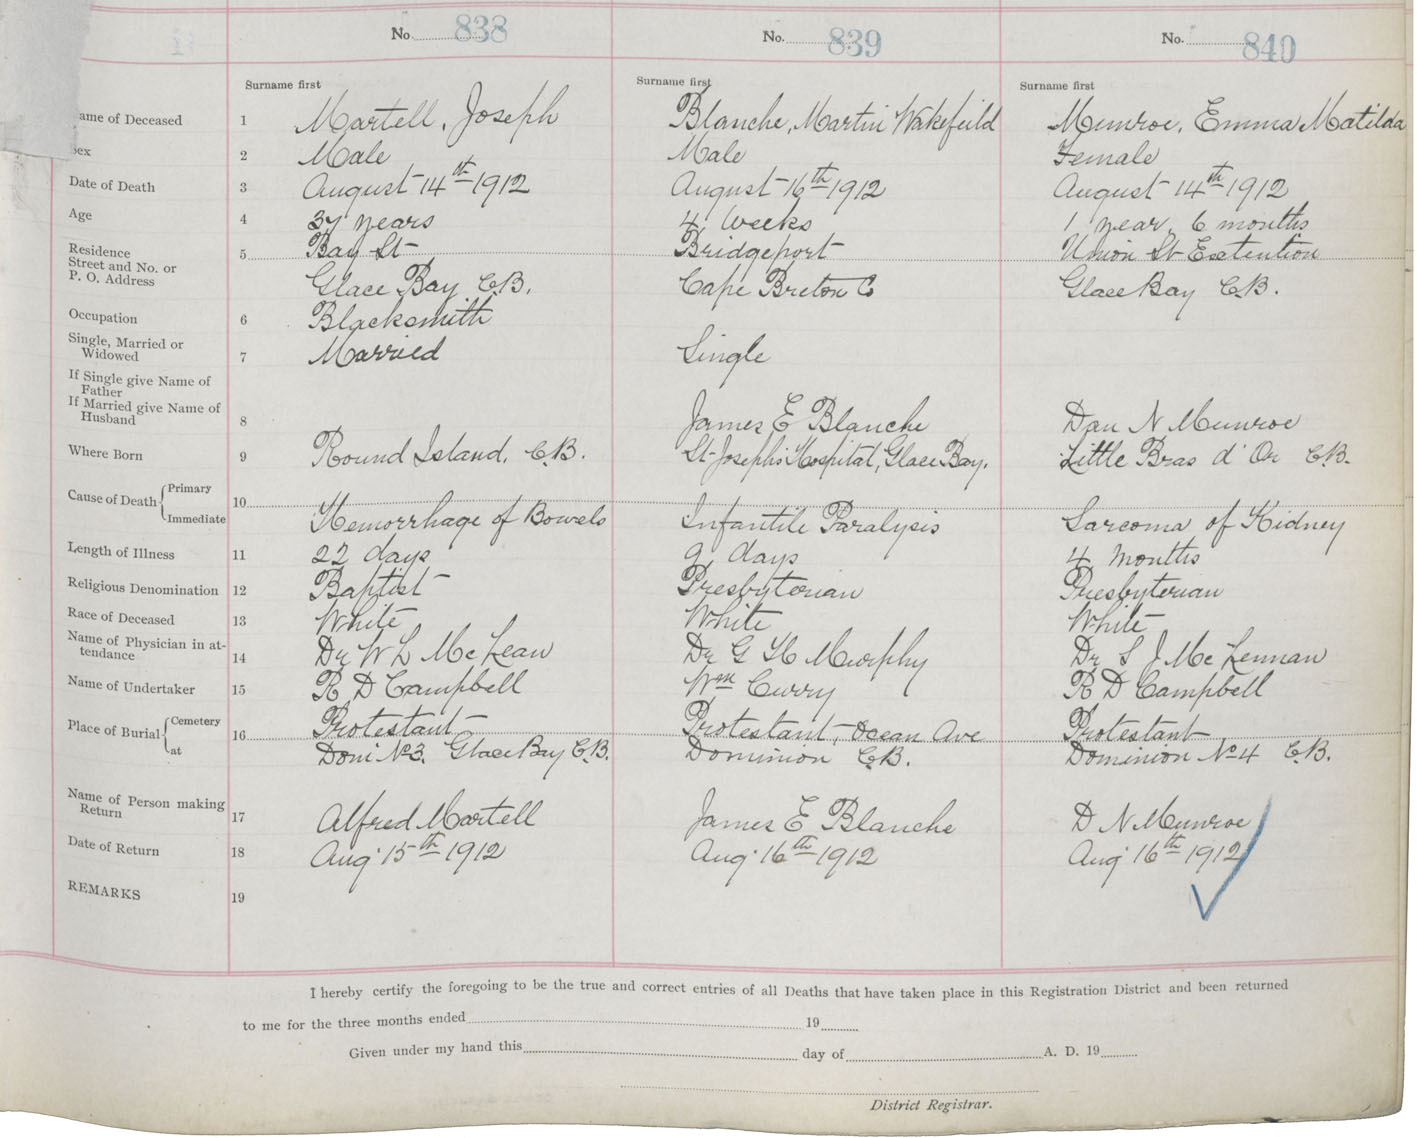 No. 838 No. 839 No. 840
Surname first Surname first Surname first
ame of Deceased 1 Martell, Joseph Blanche, Martin Wakefeild Munroe, Emma Matilda
Sex 2 Male Male Female
Date of Death 3 August 14th 1912 August 16th 1912 August 14th 1912
Age 4 37 years 4 weeks 1 year, 6 months
Residence 5 Bay St Bridgeport Union St Extention
Street and No. or
P. O. Address Glace Bay C.B. Cape Breton Co Glace Bay C.B.
Occupation 6 Blacksmith
Single, Married or
Widowed 7 Married Single
If Single give Name of
Father
If Married give Name of
Husband 8 James E Blanche Dan N Munroe
Where Born 9 Round Island, C.B. St Joseph's Hospital, Glace Bay. Little Bras d' Or C.B.
Cause of Death Primary 10
Immediate Hemorrhage of Bowels Infantile Paralysis Sarcoma of Kidney
Length of Illness 11 22 days 9 days 4 months
Religious Denomination 12 Baptist Presbyterian Presbyterian
Race of Deceased 13 White White White
Name of Physician in at-
tendance 14 Dr W L McLean Dr G H Murphy Dr S J McLennan
Name of Undertaker 15 R D Campbell Wm Curry R D Campbell
Place of Burial Cemetery 16 Protestant Protestant, Ocean Ave Protestant
at Domi No 3. Glace Bay C.B. Dominion C.B. Dominion No 4 C.B.
Name of Person making
Return 17 Alfred Martell James E Blanche D N Munroe
Date of Return 18 Aug 15th 1912 Aug 16th 1912 Aug 16th 1912
REMARKS 19
I hereby certify the foregoing to be the true and correct entries of all Deaths that have taken place in this Registration District and been returned
to me for the three months ended 19
Given under my hand this day of A. D. 19
District Registrar.